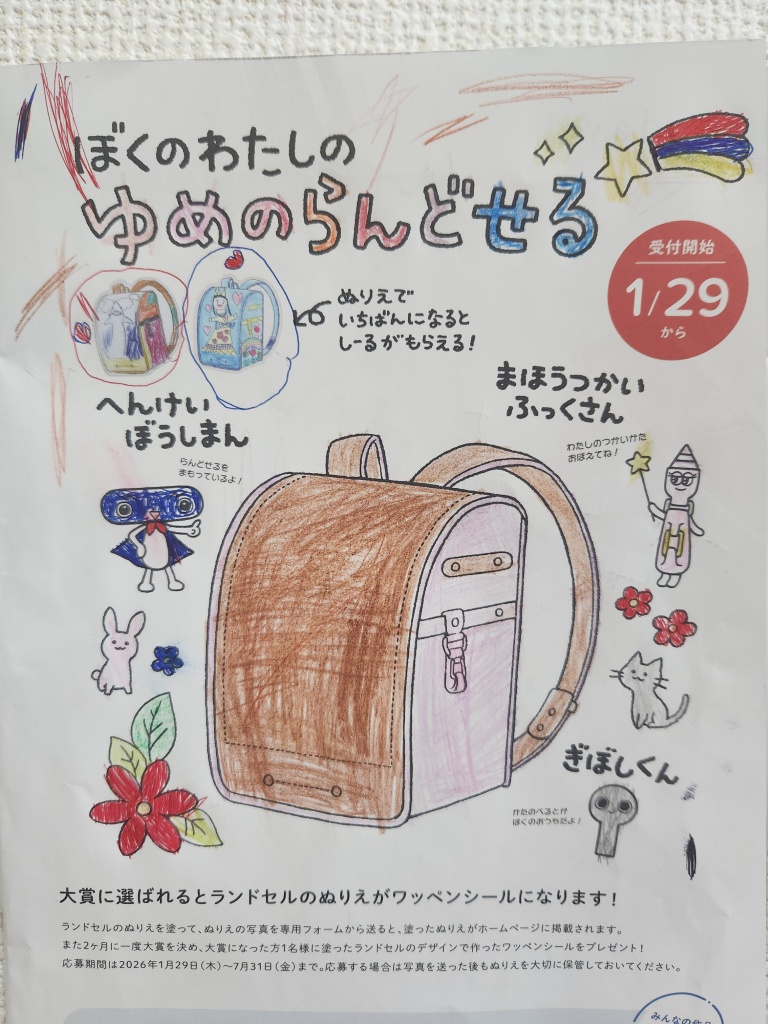 ぼくのわたしの
ゆめのらんどせる
受付開始
1/29
から
ぬりえで
いちばんになると
しーるがもらえる!
まほうつかい
ふっくさん
わたしのつかいかた
おぼえてね!
へんけい
ぼうしまん
らんどせるを
まもっているよ!
ぎぼしくん
かたのべるとが
ぼくのおうちだよ!
大賞に選ばれるとランドセルのぬりえがワッペンシールになります!
ランドセルのぬりえを塗って、ぬりえの写真を専用フォームから送ると、塗ったぬりえがホームページに掲載されます。
また2ヶ月に一度大賞を決め、大賞になった方1名様に塗ったランドセルのデザインで作ったワッペンシールをプレゼント!
応募期間は2026年1月29日(木)~7月31日(金)まで。応募する場合は写真を送った後もぬりえを大切に保管しておいてください。
みんなの作品